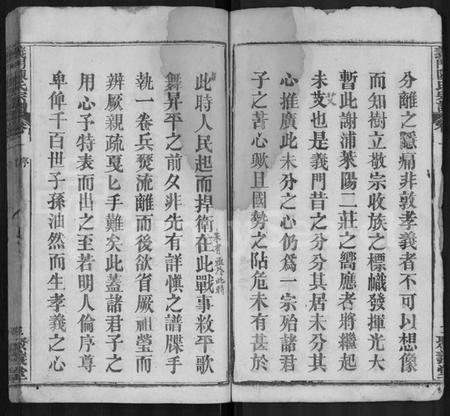 分離之隱痛非敦孝義者不可以想像
而知樹立敬宗收族之標幟發揮光大
暫此謝浦萊陽二莊之嚮應者將繼起
未艾也是義門昔之分分其居未分其
心推廣此未分之心仍為一宗始諸君
子之苦心歟且國勢之阽危未有甚於
此時人民起而捍衛在此戰事敉平歌
舞昇平之前夕非先有詳慎之譜牒手
執一卷兵燹流離而後欲省厥祖塋而
辨厥親疏戛乎難矣此蓋諸君子之
用心予特表而出之至若明人倫序尊
卑俾千百世子孫油然而生孝義之心